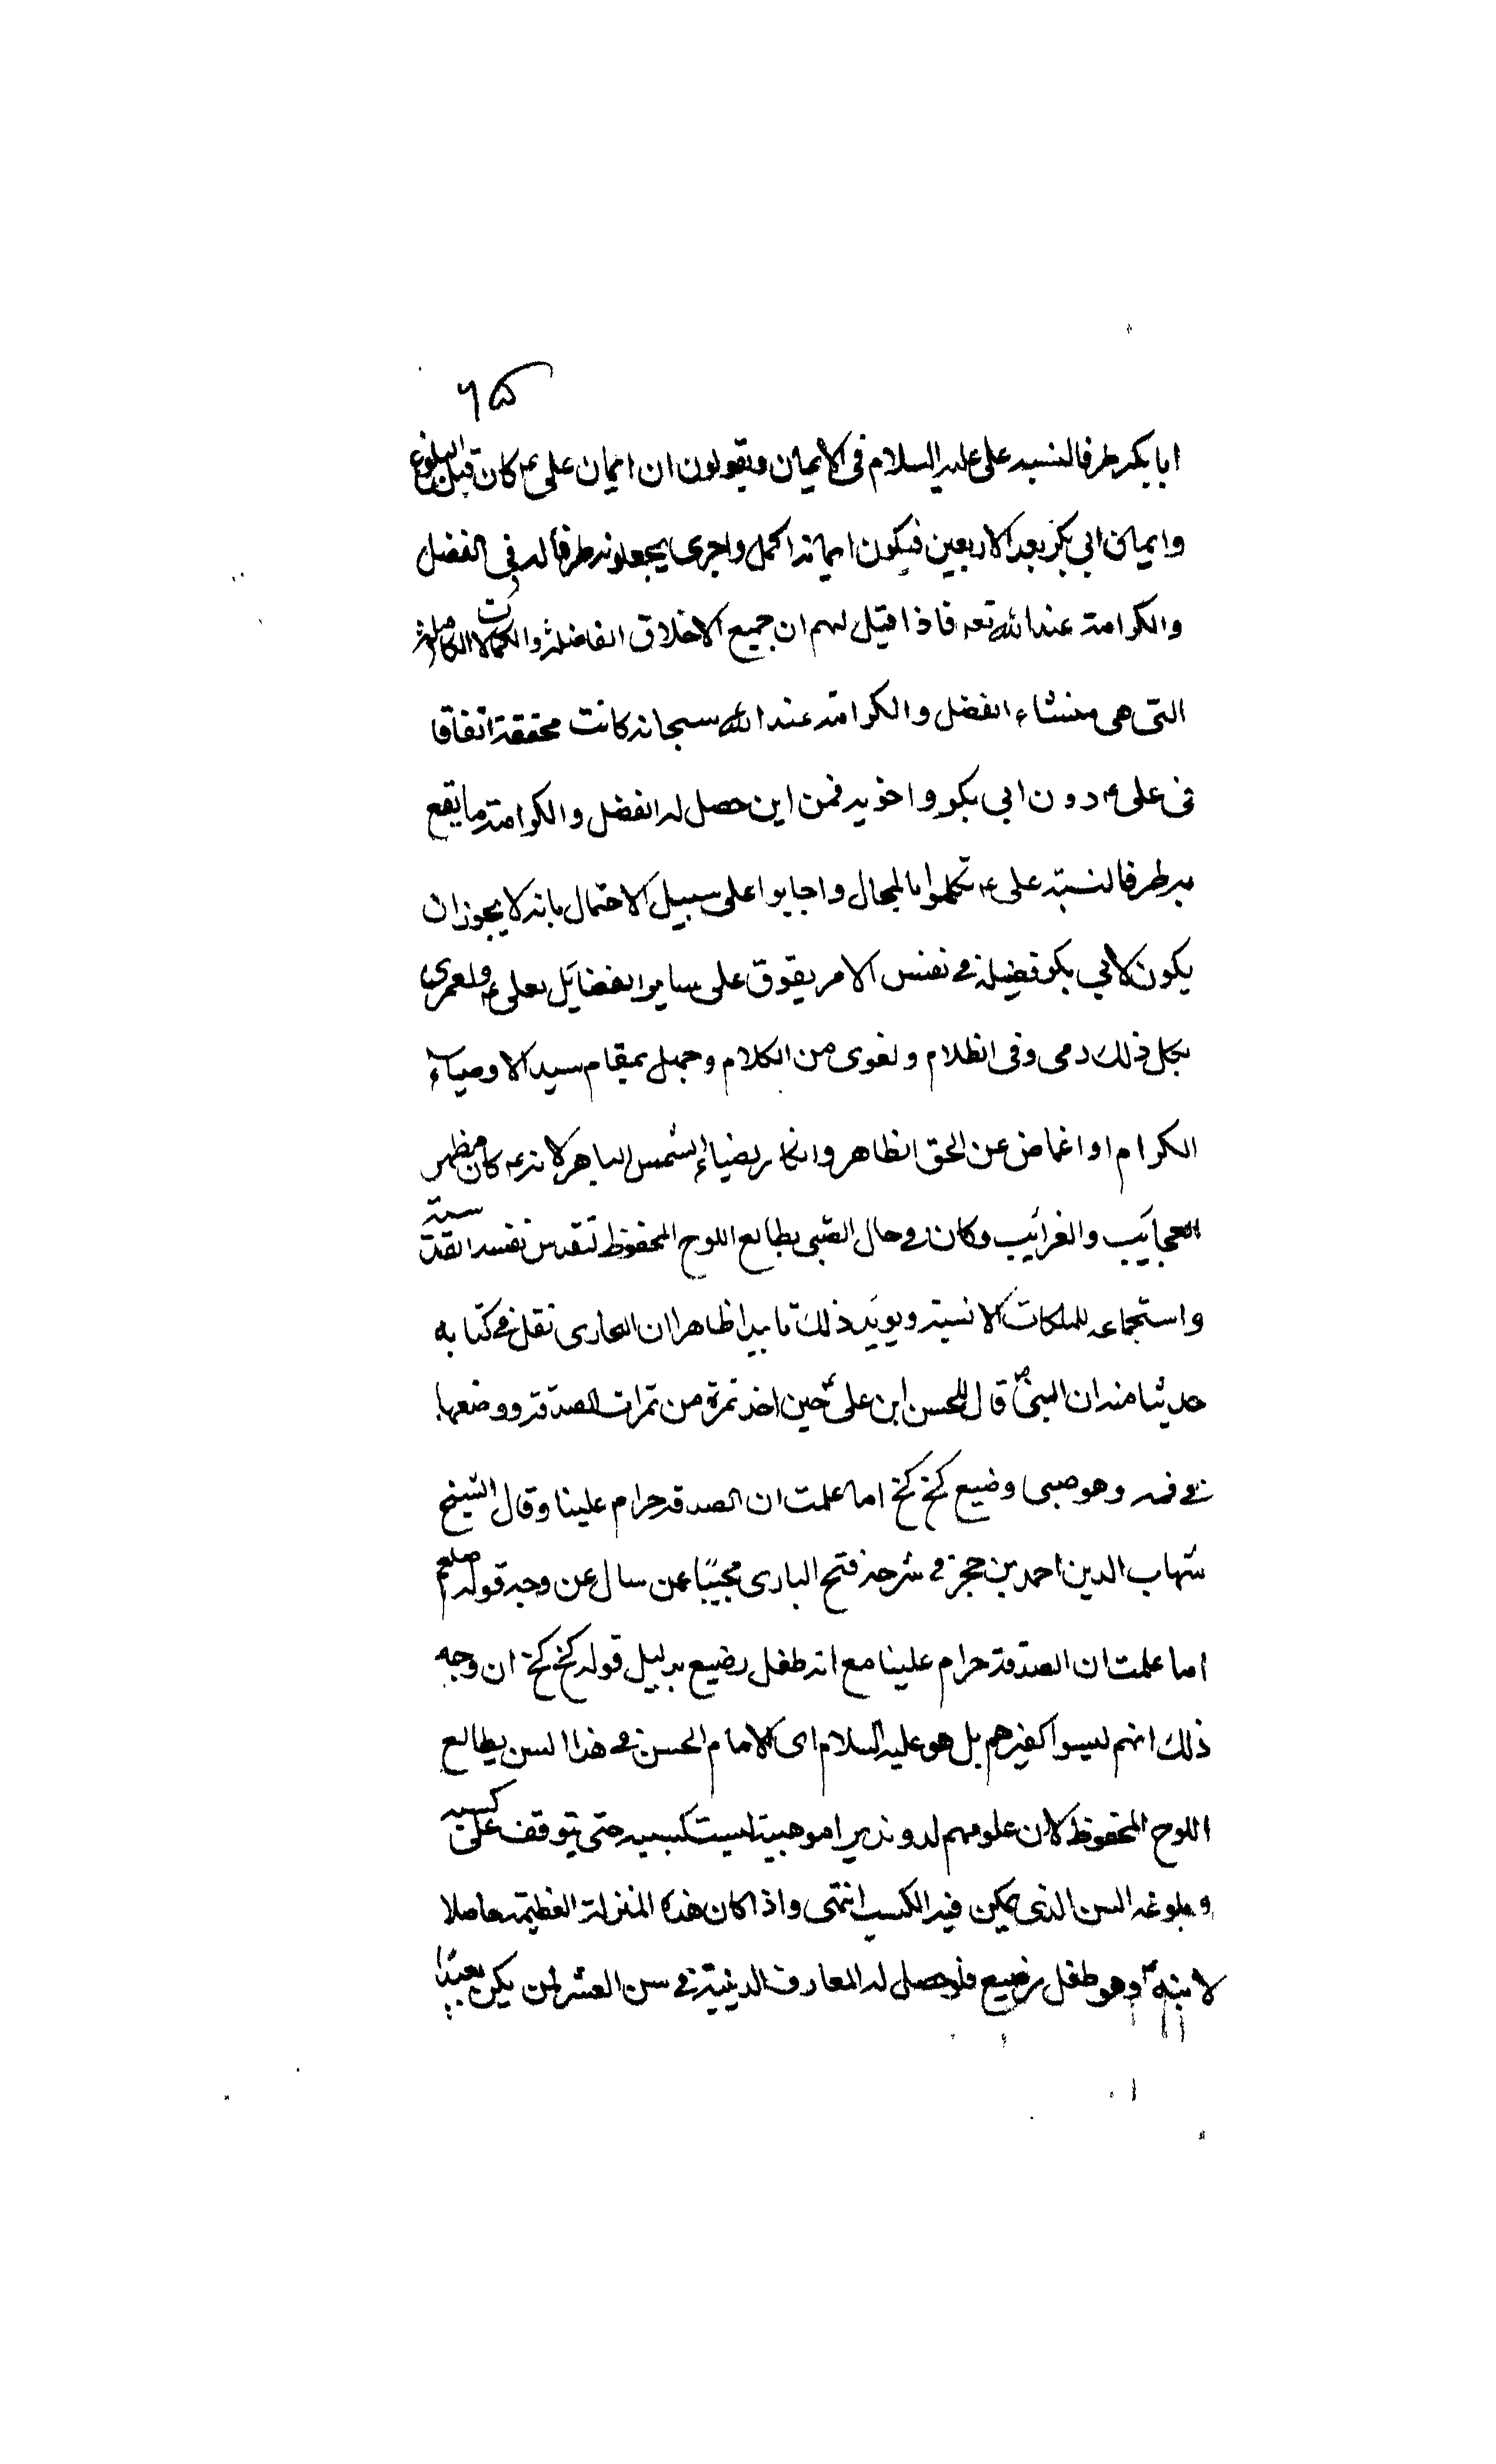 ٦٥
ابا بكر طرفا لنسبه على عليه السلام فى الايمان ويقولون ان ايمان على ع كان قبل البلوغ
وايمان ابى بكر بعد الاربعين فيكون ايمانه اكمل واحرى يجعلونه طرفا له فى الفضل
والكرامة عند الله تعه فاذا قيل لهم ان جميع الاخلاق الفاضلة والكمالات
التى هى منشاء الفضل والكرامة عند الله سبحانه كانت محققة اتفاقا
فى على ع دون ابى بكر واخويه فمن اين حصل له الفضل والكرامة ما يقع
به طرفا لنسبة على ع تكلموا بالمحال واجابوا على سبيل الاحتمال بانه لا يجوز ان
يكون لابي بكر فضيلة فى نفس الامر يفوق على ساير الفضايل لعلى ع ولعمرى
بكل ذلك رمى وفى الظلام ولغوى من الكلام وجهل بمقام سيد الاوصياء
الكرام او اغماض عن الحق الظاهر وانكار بضياء الشمس الباهر لانه ع كان مظهر
العجايب والغرايب وكان فى حال الصبى يطالع اللوح المحفوظ لتقدس نفسه القدسية
واستجماعه للملكات الانسية ويويد ذلك تاييدا ظاهرا ان البخارى نقل فى كتابه
حديثا منه ان النبى ص قال للحسن ابن على ع حين اخذ تمرة من تمرات الصدقة ووضعها
فى فمه وهو صبى وضيع كخ كخ اما علمت ان الصدقه حرام علينا وقال الشيخ
شهاب الدين احمد بن حجر فى شرحه فتح البارى مجيبا عمن سال عن وجه قوله صلعم
اما علمت ان الصدقة حرام علينا مع انه طفل رضيع بدليل قوله كخ كخ ان وجه
ذلك انهم ليسوا كغيرهم بل هو عليه السلام اى الامام الحسن فى هذا السن يطالع
اللوح المحفوظ لان علومهم لدونديه اموهبية ليست كسبيه حتى يتوقف على كسبه
وبلوغه السن الذى يمكن فيه الكسب انتهى واذا كان هذه المنزلة العظيمة حاصلا
لابنه ع وهو طفل رضيع فلو حصل له المعارف الدينية فى سن العشر لمن يكن بعيدا